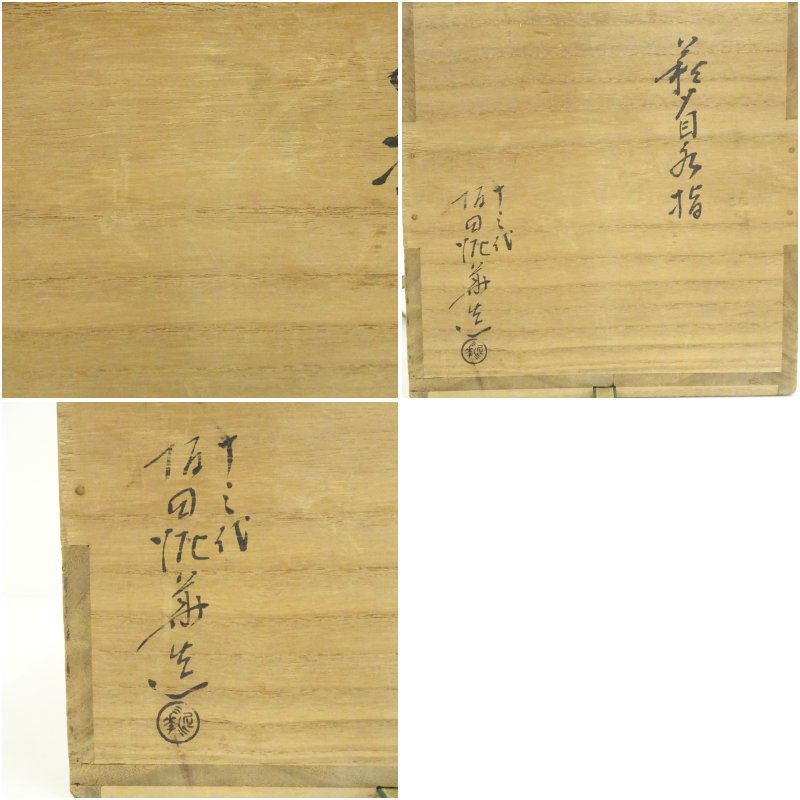 萩 水指
十三代
坂田泥華造
十三代
坂田泥華造